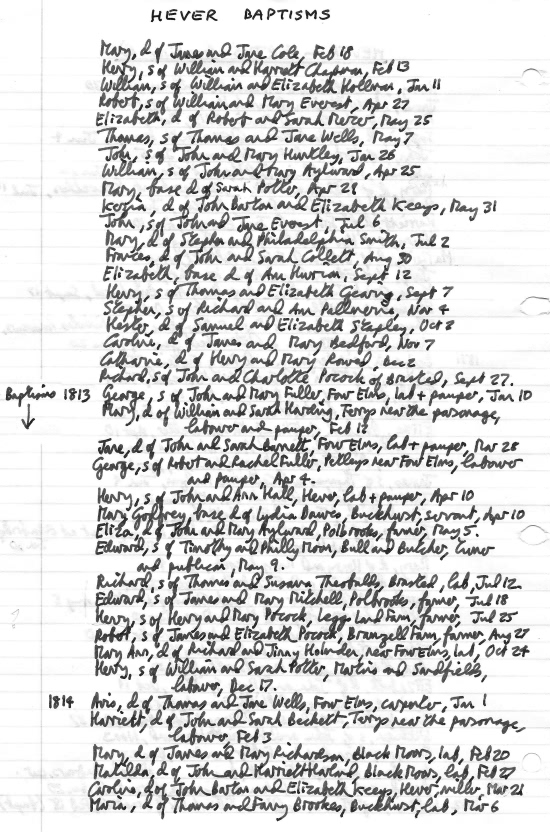 HEVER BAPTISMS
Mary, d of James and Jane Cole, Feb 18
Henry, s of William and Harriett Chapman, Feb 13
William, s of William and Elizabeth Hollman, Jan 11
Robert, s of William and Mary Everest, Apr 27
Elizabeth, d of Robert and Sarah Mercer, May 25
Thomas, s of Thomas and Jane Wells, May 7
John, s of John and Mary Huntley, Jan 26
William, s of John and Mary Aylward, Apr 25
Mary, base d of Sarah Potter, Apr 28
Kezia, d of John Barton and Elizabeth Keeys, May 31
John, s of John and Jane Everest, Jul 6
Mary, d of Stephen and Philadelphia Smith, Jul 2
Frances, d of John and Sarah Collett, Aug 30
Elizabeth, base d of Ann Hurrion, Sept 12
Henry, s of Thomas and Elizabeth Gearing, Sept 7
Stephen, s of Richard and Ann Nov 4
Hester, d of Samuel and Elizabeth Stapley, Oct 2
Caroline, d of James and Mary Bedford, Nov 7
Catharine, d of Henry and Mary Dec 2
Richard, s of John and Charlotte Pocock of Brasted, Sept 27.
Baptisms 1813 George, s of John and Mary Fuller, Four Elms, lab + pauper, Jan 10
Mary, d of William and Sarah Harding, Terrys near the parsonage,
labourer and pauper, Feb
Jane, d of John and Sarah Barnett, Four Elms, lab + pauper, Mar 28
George, s of Robert and Rachel Fuller, Pettleys near Four Elms, labourer
and pauper, Apr 4.
Henry, s of John and Ann Hall, Hever, lab + pauper, Apr 10
Mary Godfrey, base d of Lydia Dawes, Buckhurst, servant, Apr 10
Eliza, d of John and Mary Aylward, Polbrooks, farmer, May 5.
Edward, s of Timothy and Philly Moon, Bull and Butcher,
and publican, May 9.
Richard, s of Thomas and Susanna Theobalds, Brasted, lab, Jul 12
Edward, s of James and Mary Mitchell, Polbrooks, farmer, Jul 18
Henry, s of Henry and Mary Pocock, Leggs Land Farm, farmer, Jul 25
Robert, s of James and Elizabeth Pocock, Bramzell Farm, farmer, Aug 27
Mary Ann, d of Richard and Jinny near Four Elms, lab, Oct 24
Henry, s of William and Sarah Potter, Martins and Sandfields,
labourer, Dec 17.
1814 Avis, d of Thomas and Jane Wells, Four Elms, carpenter, Jan 1
Harriett, d of John and Sarah Beckett, Terrys near the parsonage,
labourer, Feb 3
Mary, d of James and Mary Richardson, Black Moors, lab, Feb 20
Matilda, d of John and Harriett Harland, Black Moors, lab, Feb 27
Caroline, d of John Barton and Elizabeth Keeys, Hever, miller, Mar 21
Maria, d of Thomas and Fanny Brookes, Buckhurst, lab, Mar 6